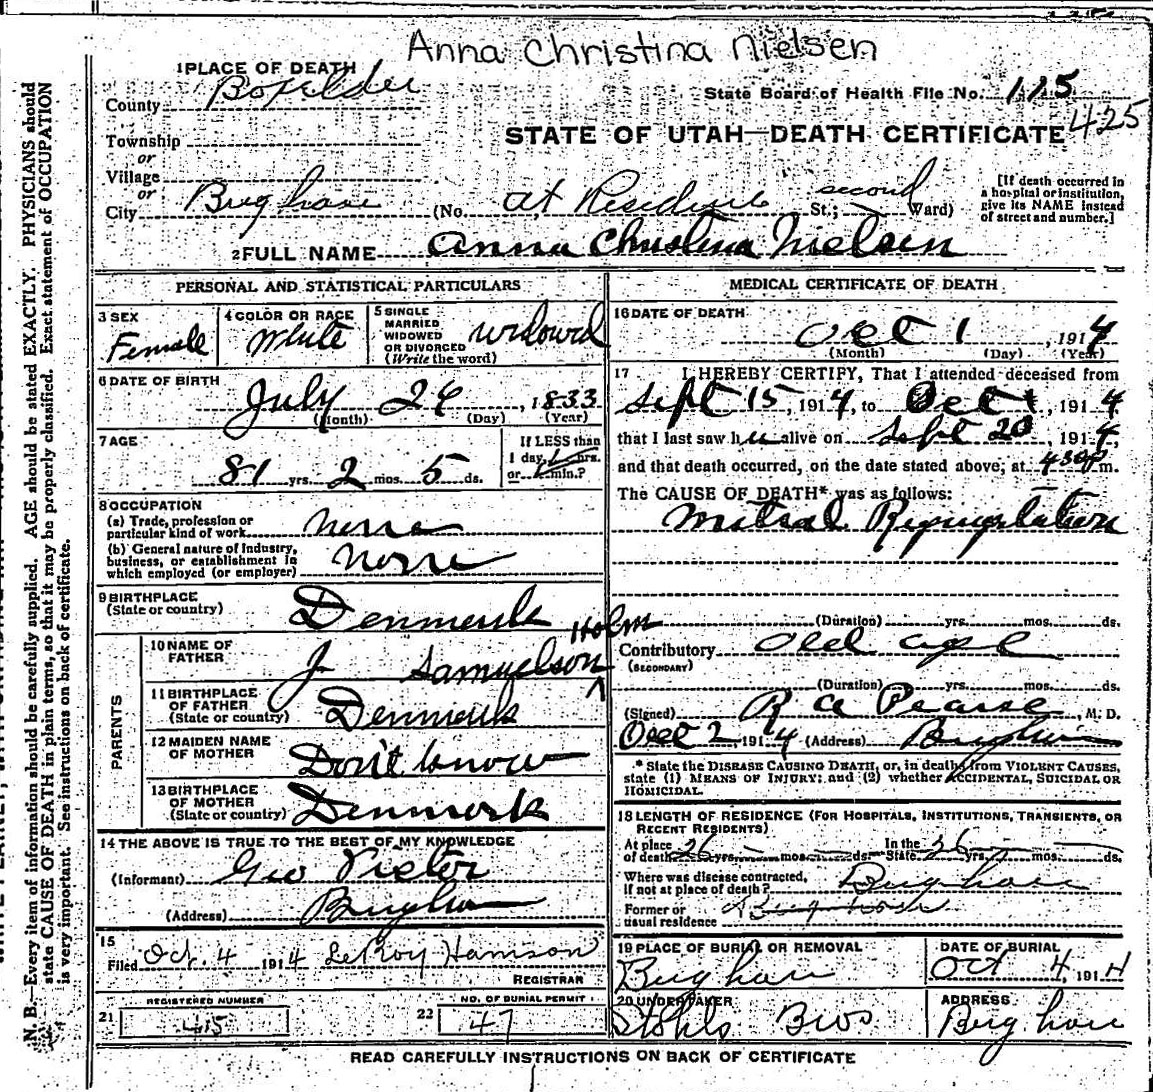 Anna Christina Nielsen
1 PLACE OF DEATH
County Boxelder
State Board of Health File No. 115
425
STATE OF UTAH—DEATH CERTIFICATE
Township
or
Village
or
City Brigham (No. at Residence St.; second Ward)
[If death occurred in a hospital or institution, give its NAME instead of street and number.]
2 FULL NAME Anna Christina Nielsen
PERSONAL AND STATISTICAL PARTICULARS
3 SEX
Female
4 COLOR OR RACE
White
5 SINGLE
MARRIED
WIDOWED
OR DIVORCED
(Write the word)
Widowd
6 DATE OF BIRTH
July 24, 1833
(Month) (Day) (Year)
7 AGE
81 yrs. 2 mos. 5 ds.
If LESS than
1 day, hrs.
or min.?
8 OCCUPATION
(a) Trade, profession or
particular kind of work none
(b) General nature of Industry,
business, or establishment in
which employed (or employer) none
9 BIRTHPLACE
(State or country) Denmark
PARENTS
10 NAME OF
FATHER J Samuelson Holm
11 BIRTHPLACE
OF FATHER
(State or country) Denmark
12 MAIDEN NAME
OF MOTHER Don't know
13 BIRTHPLACE
OF MOTHER
(State or country) Denmark
14 THE ABOVE IS TRUE TO THE BEST OF MY KNOWLEDGE
(Informant) Geo Victor
(Address) Brigham
15
Filed Oct. 4 1914 LeRoy Hamson
REGISTRAR
REGISTERED NUMBER
21 415
NO. OF BURIAL PERMIT
22 47
MEDICAL CERTIFICATE OF DEATH
16 DATE OF DEATH
Oct 1, 1914
(Month) (Day) (Year)
17 I HEREBY CERTIFY, That I attended deceased from
Sept 15, 1914, to Oct 1, 1914
that I last saw her alive on Sept 20, 1914,
and that death occurred, on the date stated above, at 430p m.
The CAUSE OF DEATH* was as follows:
Mitral Regurgitation
(Duration) yrs. mos. ds.
Contributory old age
(SECONDARY)
(Duration) yrs. mos. ds.
(Signed) R A Pearse, M. D.
Oct 2, 1914 (Address) Brigham
* State the DISEASE CAUSING DEATH, or, in deaths from VIOLENT CAUSES,
state (1) MEANS OF INJURY; and (2) whether ACCIDENTAL, SUICIDAL OR
HOMICIDAL.
18 LENGTH OF RESIDENCE (FOR HOSPITALS, INSTITUTIONS, TRANSIENTS, OR
RECENT RESIDENTS)
At place
of death 26 yrs. mos. ds. In the State 36 yrs. mos. ds.
Where was disease contracted,
if not at place of death? Brigham
Former or
usual residence Brigham
19 PLACE OF BURIAL OR REMOVAL
Brigham
DATE OF BURIAL
Oct 4, 1914
20 UNDERTAKER
Stohls Bros
ADDRESS
Brigham
READ CAREFULLY INSTRUCTIONS ON BACK OF CERTIFICATE
N. B.—Every item of information should be carefully supplied. AGE should be stated EXACTLY. PHYSICIANS should
state CAUSE OF DEATH in plain terms, so that it may be properly classified. Exact statement of OCCUPATION
is very important. See instructions on back of certificate.